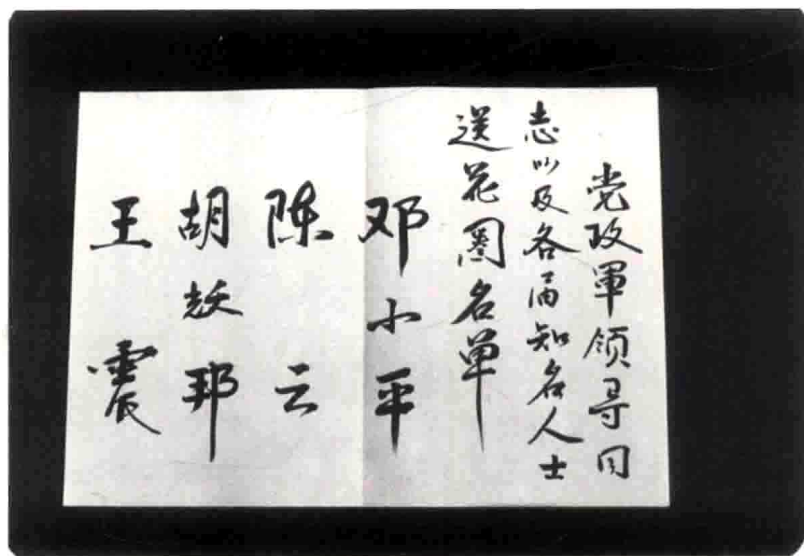 党政軍领导同
志以及各届知名人士
送花圈名单
邓小平
陈云
胡耀邦
王震